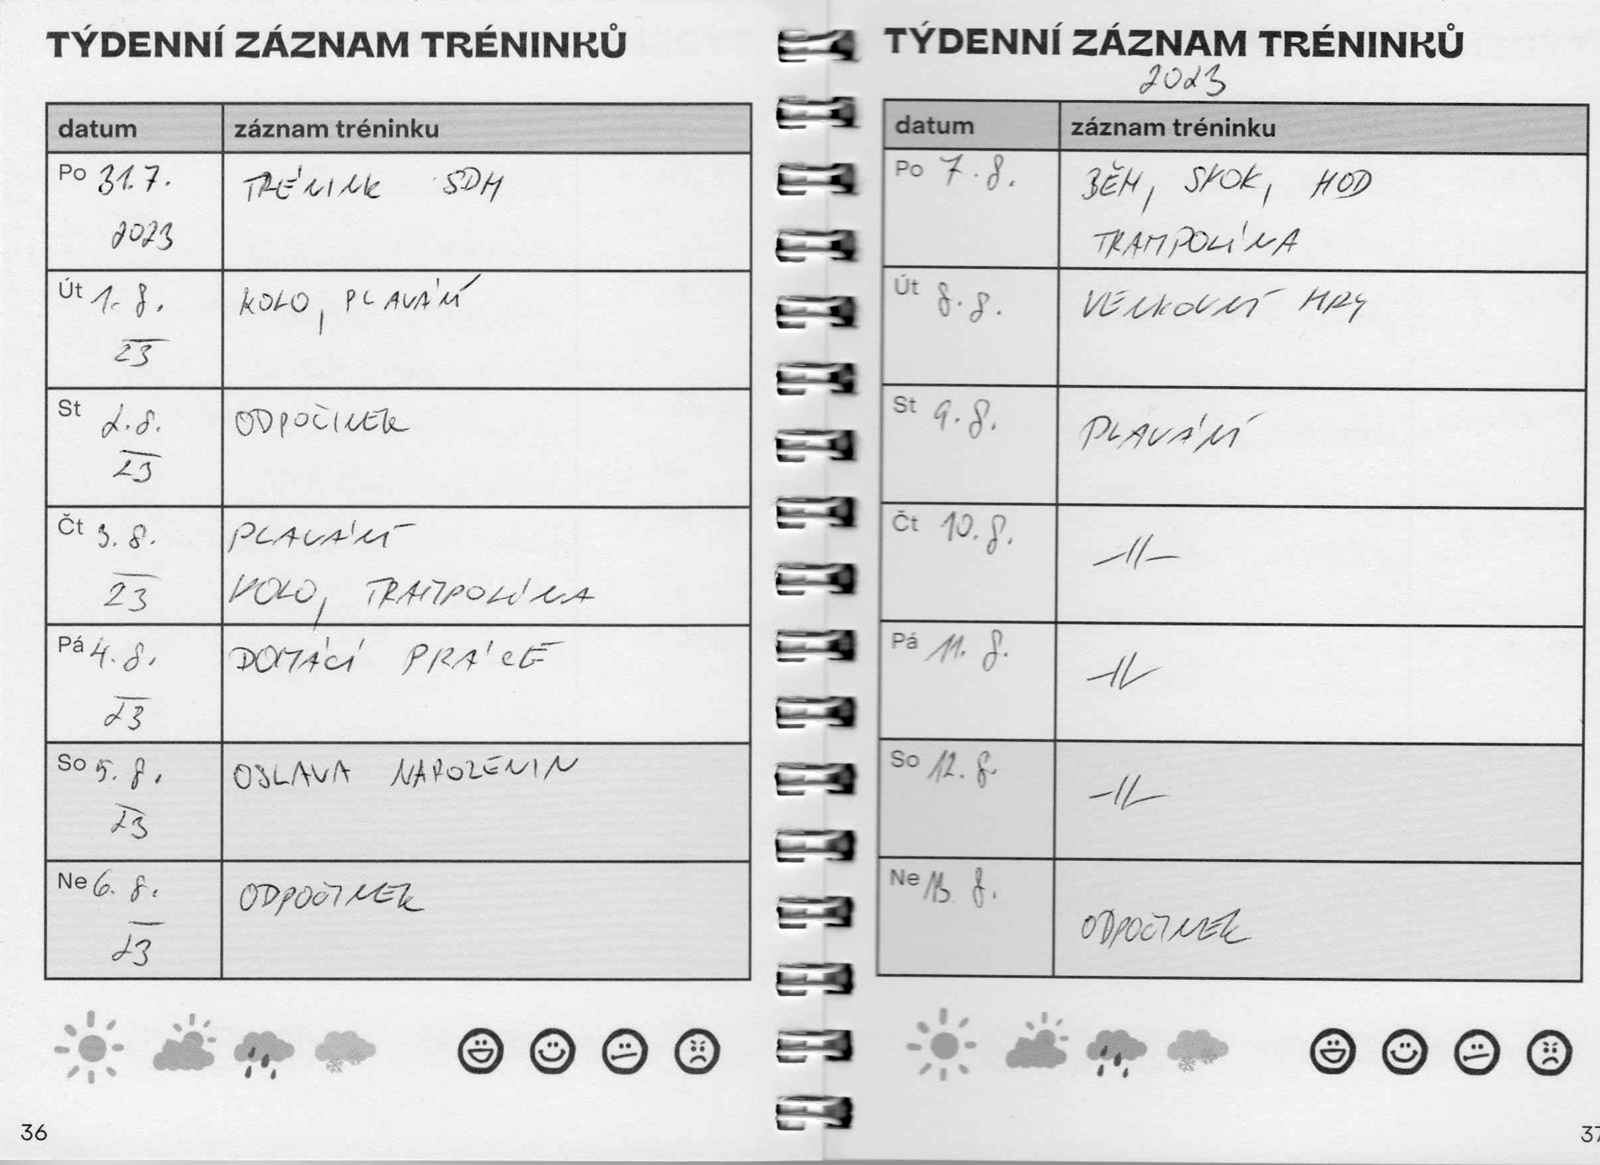 TÝDENNÍ ZÁZNAM TRÉNINKŮ
datum záznam tréninku
Po 31.7. TRÉNINK SDH
2023
Út 1. 8. KOLO, PLAVÁNÍ
23
St 2.8. ODPOČINEK
23
Čt 3. 8. PLAVÁNÍ
23 KOLO, TRAMPOLÍNA
Pá 4. 8. DOMÁCÍ PRÁCE
23
So 5. 8. OSLAVA NAROZENIN
23
Ne 6. 8. ODPOČINEK
23
36
TÝDENNÍ ZÁZNAM TRÉNINKŮ
2023
datum záznam tréninku
Po 7. 8. BĚH, SKOK, HOD
TRAMPOLÍNA
Út 8. 8. VENKOVNÍ HRY
St 9. 8. PLAVÁNÍ
Čt 10. 8. -||-
Pá 11. 8. -||-
So 12. 8. -||-
Ne 13. 8.
ODPOČINEK
37